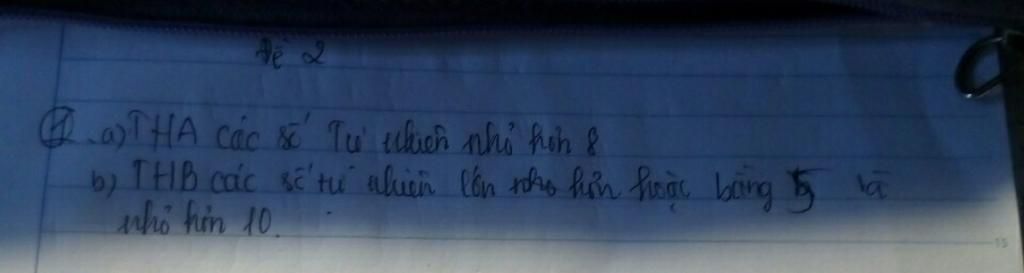 Đề 2
1. a) THA các số Tự nhiên nhỏ hơn 8
b) THB các số tự nhiên lớn hơn hoặc bằng 5 và
nhỏ hơn 10.